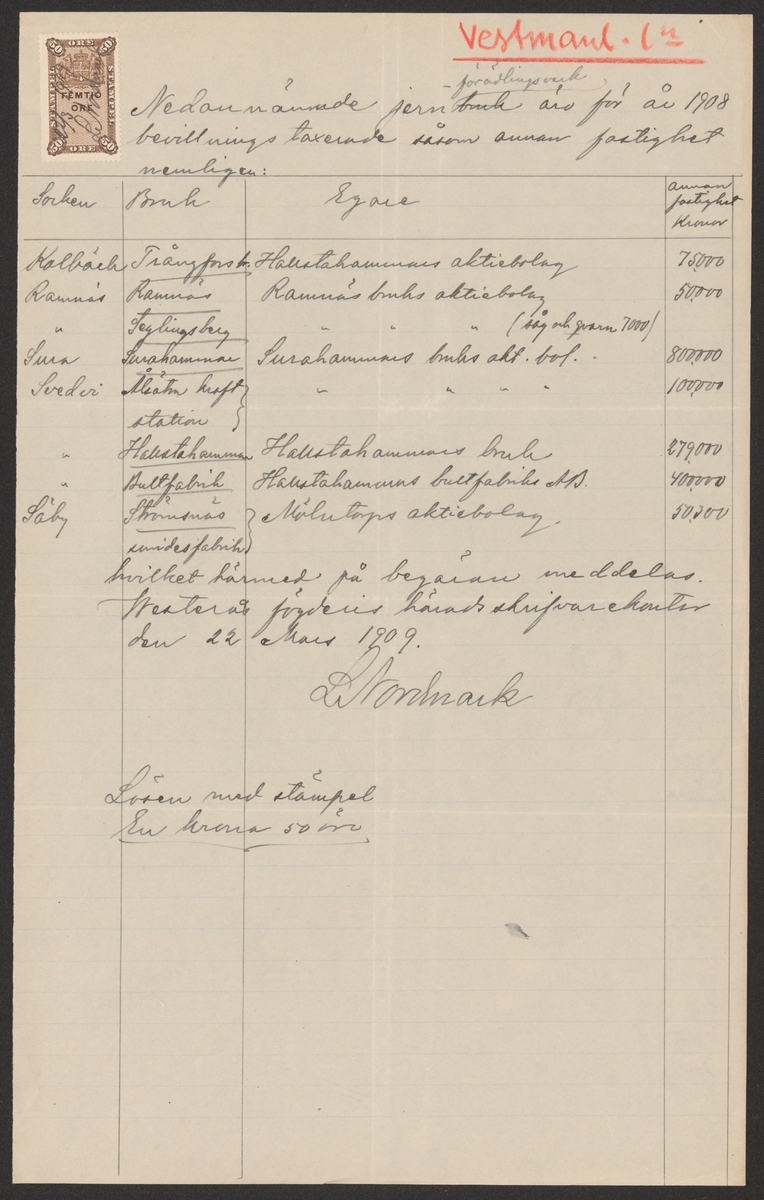 Vestmanl. ln
50 ÖRE 50
STÄMPEL STÄMPEL
FEMTIO
ÖRE
50 ÖRE 50
förädlingsverk
Nedannämnde jernbruk äro för år 1908
bevillningstaxerade såsom annan fastighet
nemligen:
Socken Bruk Egare annan fastighet Kronor
Kolbäck Trångfors br. Hallstahammars aktiebolag 75,000
Ramnäs Ramnäs Ramnäs bruks aktiebolag 50,000
" Seglingsberg " " " (såg och qvarn 7000)
Sura Surahammar Surahammars bruks akt. bol. 800,000
Svedvi Ålsätra kraft " " " " 100,000
station
" Hallstahammar Hallstahammars bruk 279,000
" Bultfabrik Hallstahammars bultfabriks AB. 400,000
Säby Strömsnäs Mölntorps aktiebolag. 50,200
smidesfabrik
hvilket härmed på begäran meddelas.
Westerås fögderis häradsskrifvarekontor
den 22 Mars 1909.
L Nordmark
Lösen med stämpel
En krona 50 öre